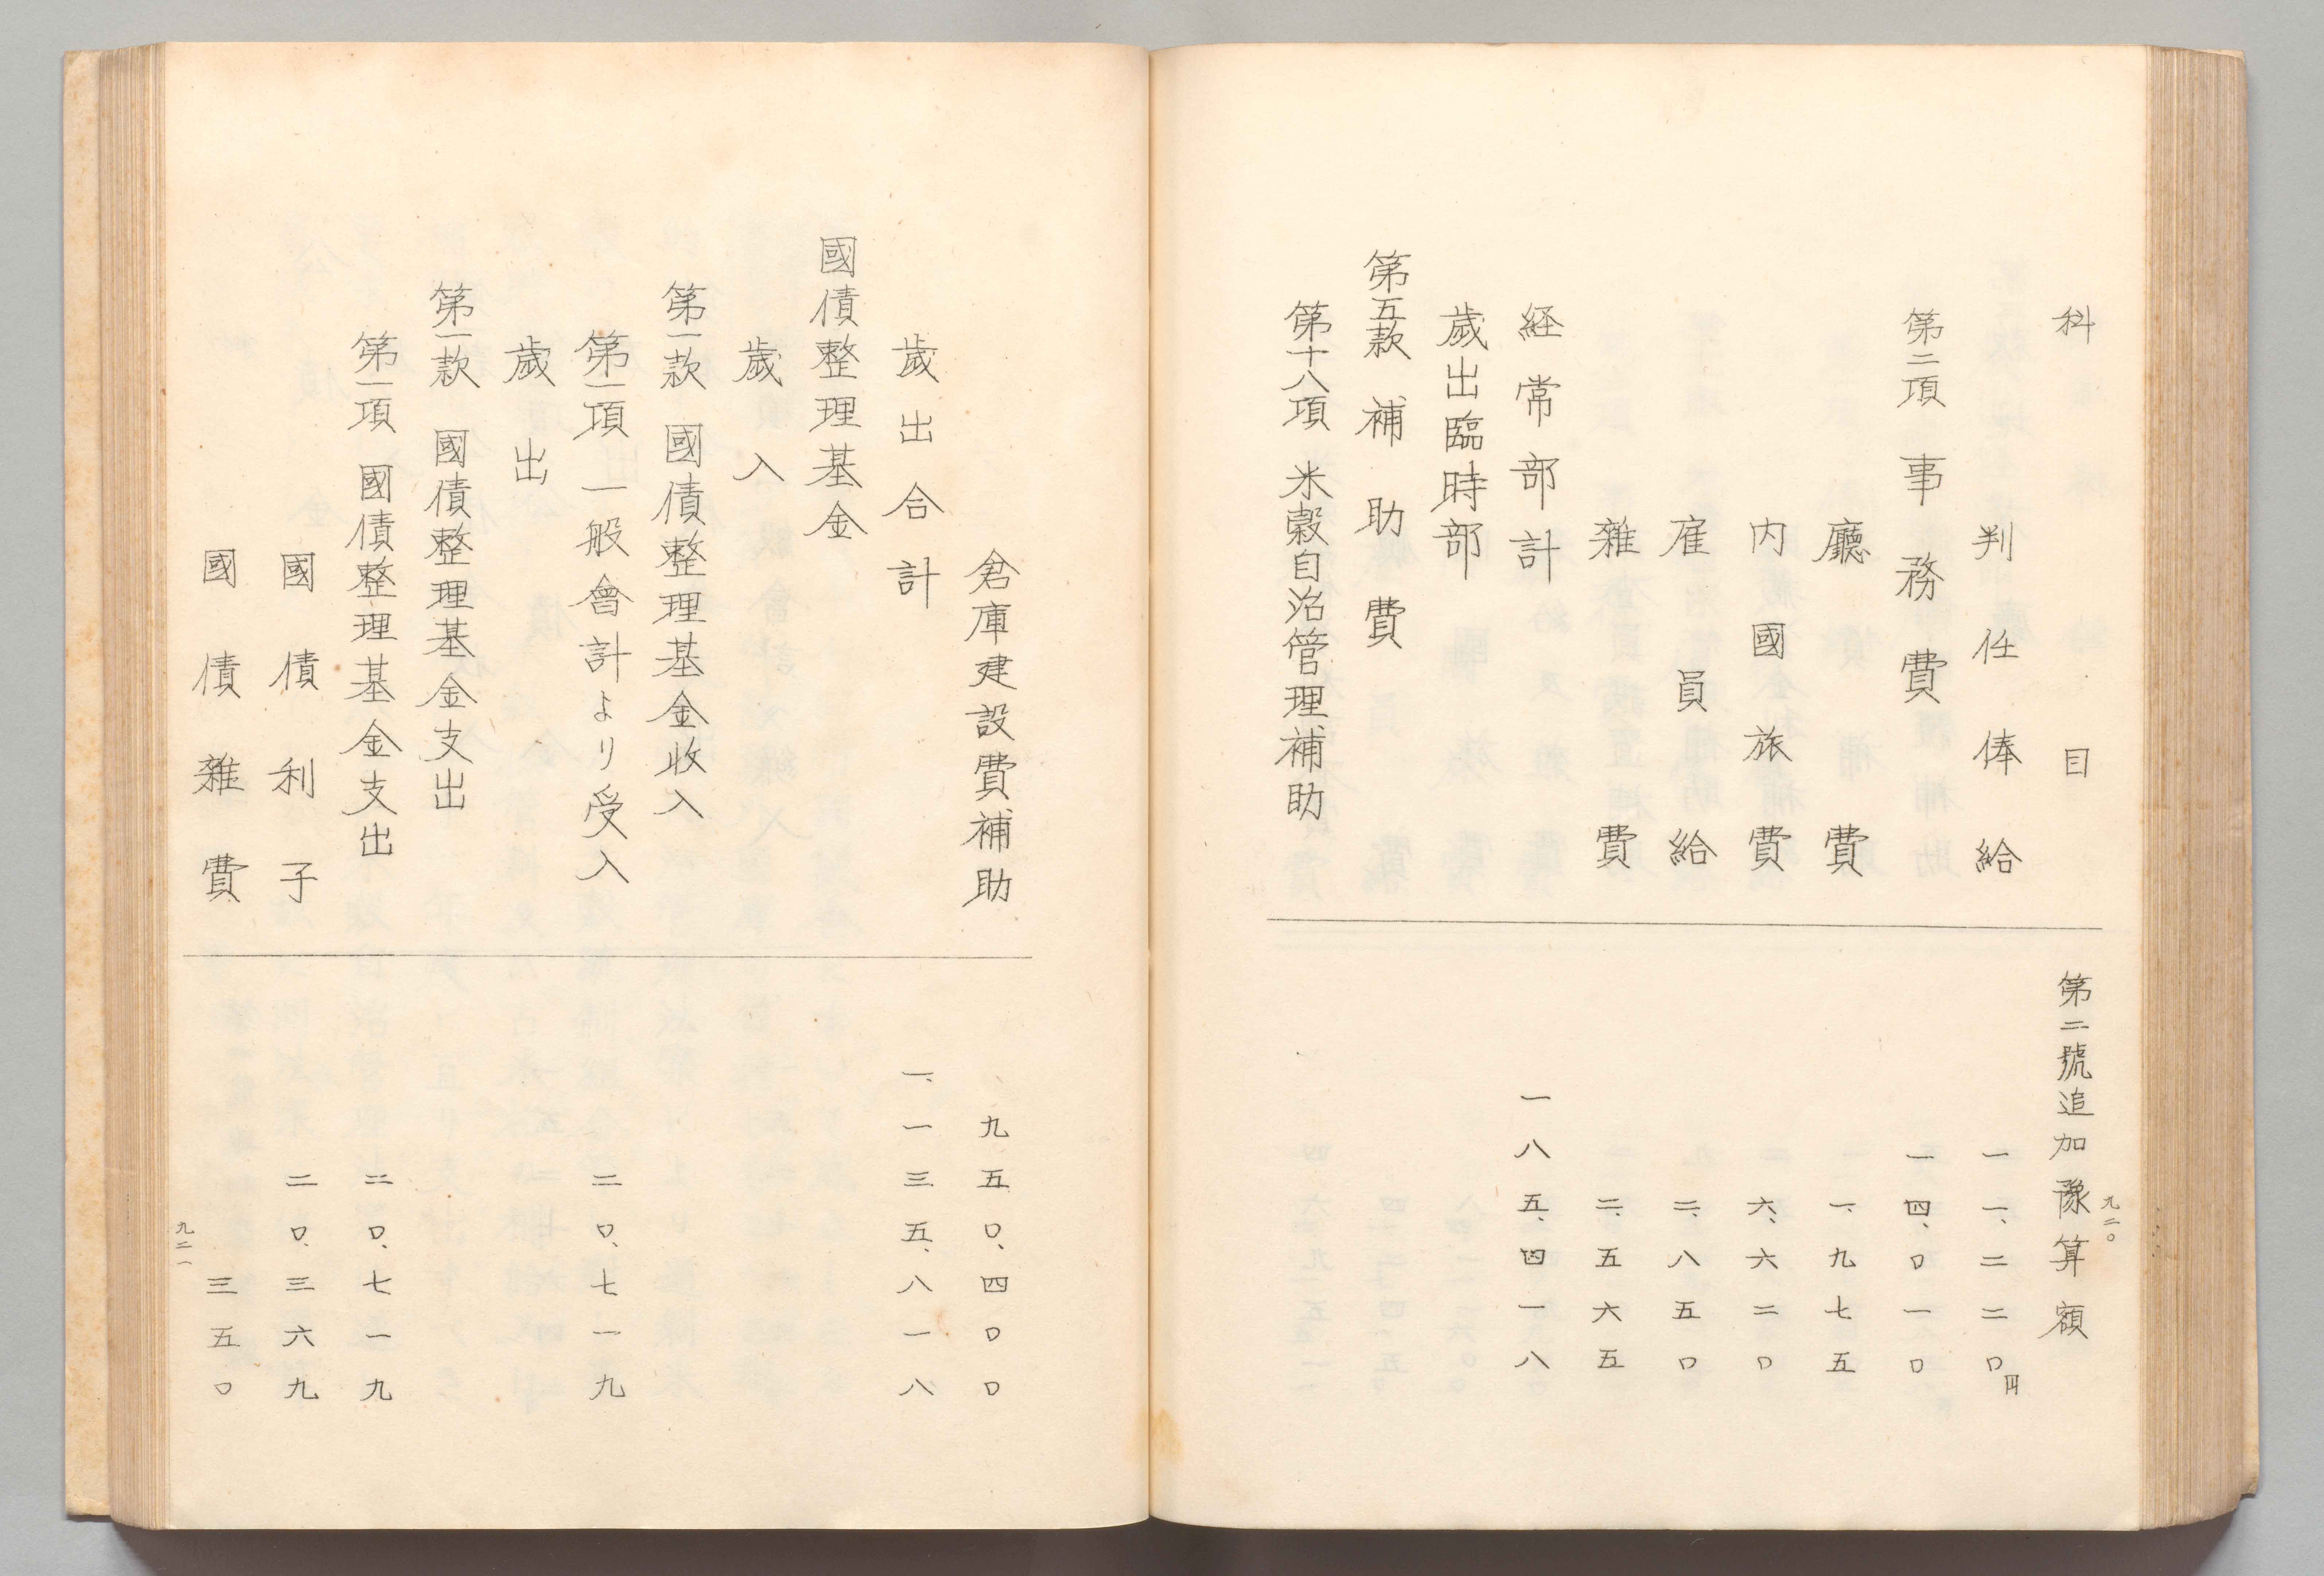 科目 第二號追加豫算額
判任俸給 一一、二二〇円
第二項 事務費 一四、〇一〇
廳費 一、九七五
内國旅費 六、六二〇
雇員給 二、八五〇
雑費 二、五六五
経常部計 一八五、四一八
歳出臨時部
第五款 補助費
第十八項 米穀自治管理補助
九二〇
倉庫建設費補助 九五〇、四〇〇
歳出合計 一、一三五、八一八
國債整理基金
歳入
第一款 國債整理基金收入
第一項 一般會計より受入 二〇、七一九
歳出
第一款 國債整理基金支出
第一項 國債整理基金支出 二〇、七一九
國債利子 二〇、三六九
國債雑費 三五〇
九二一